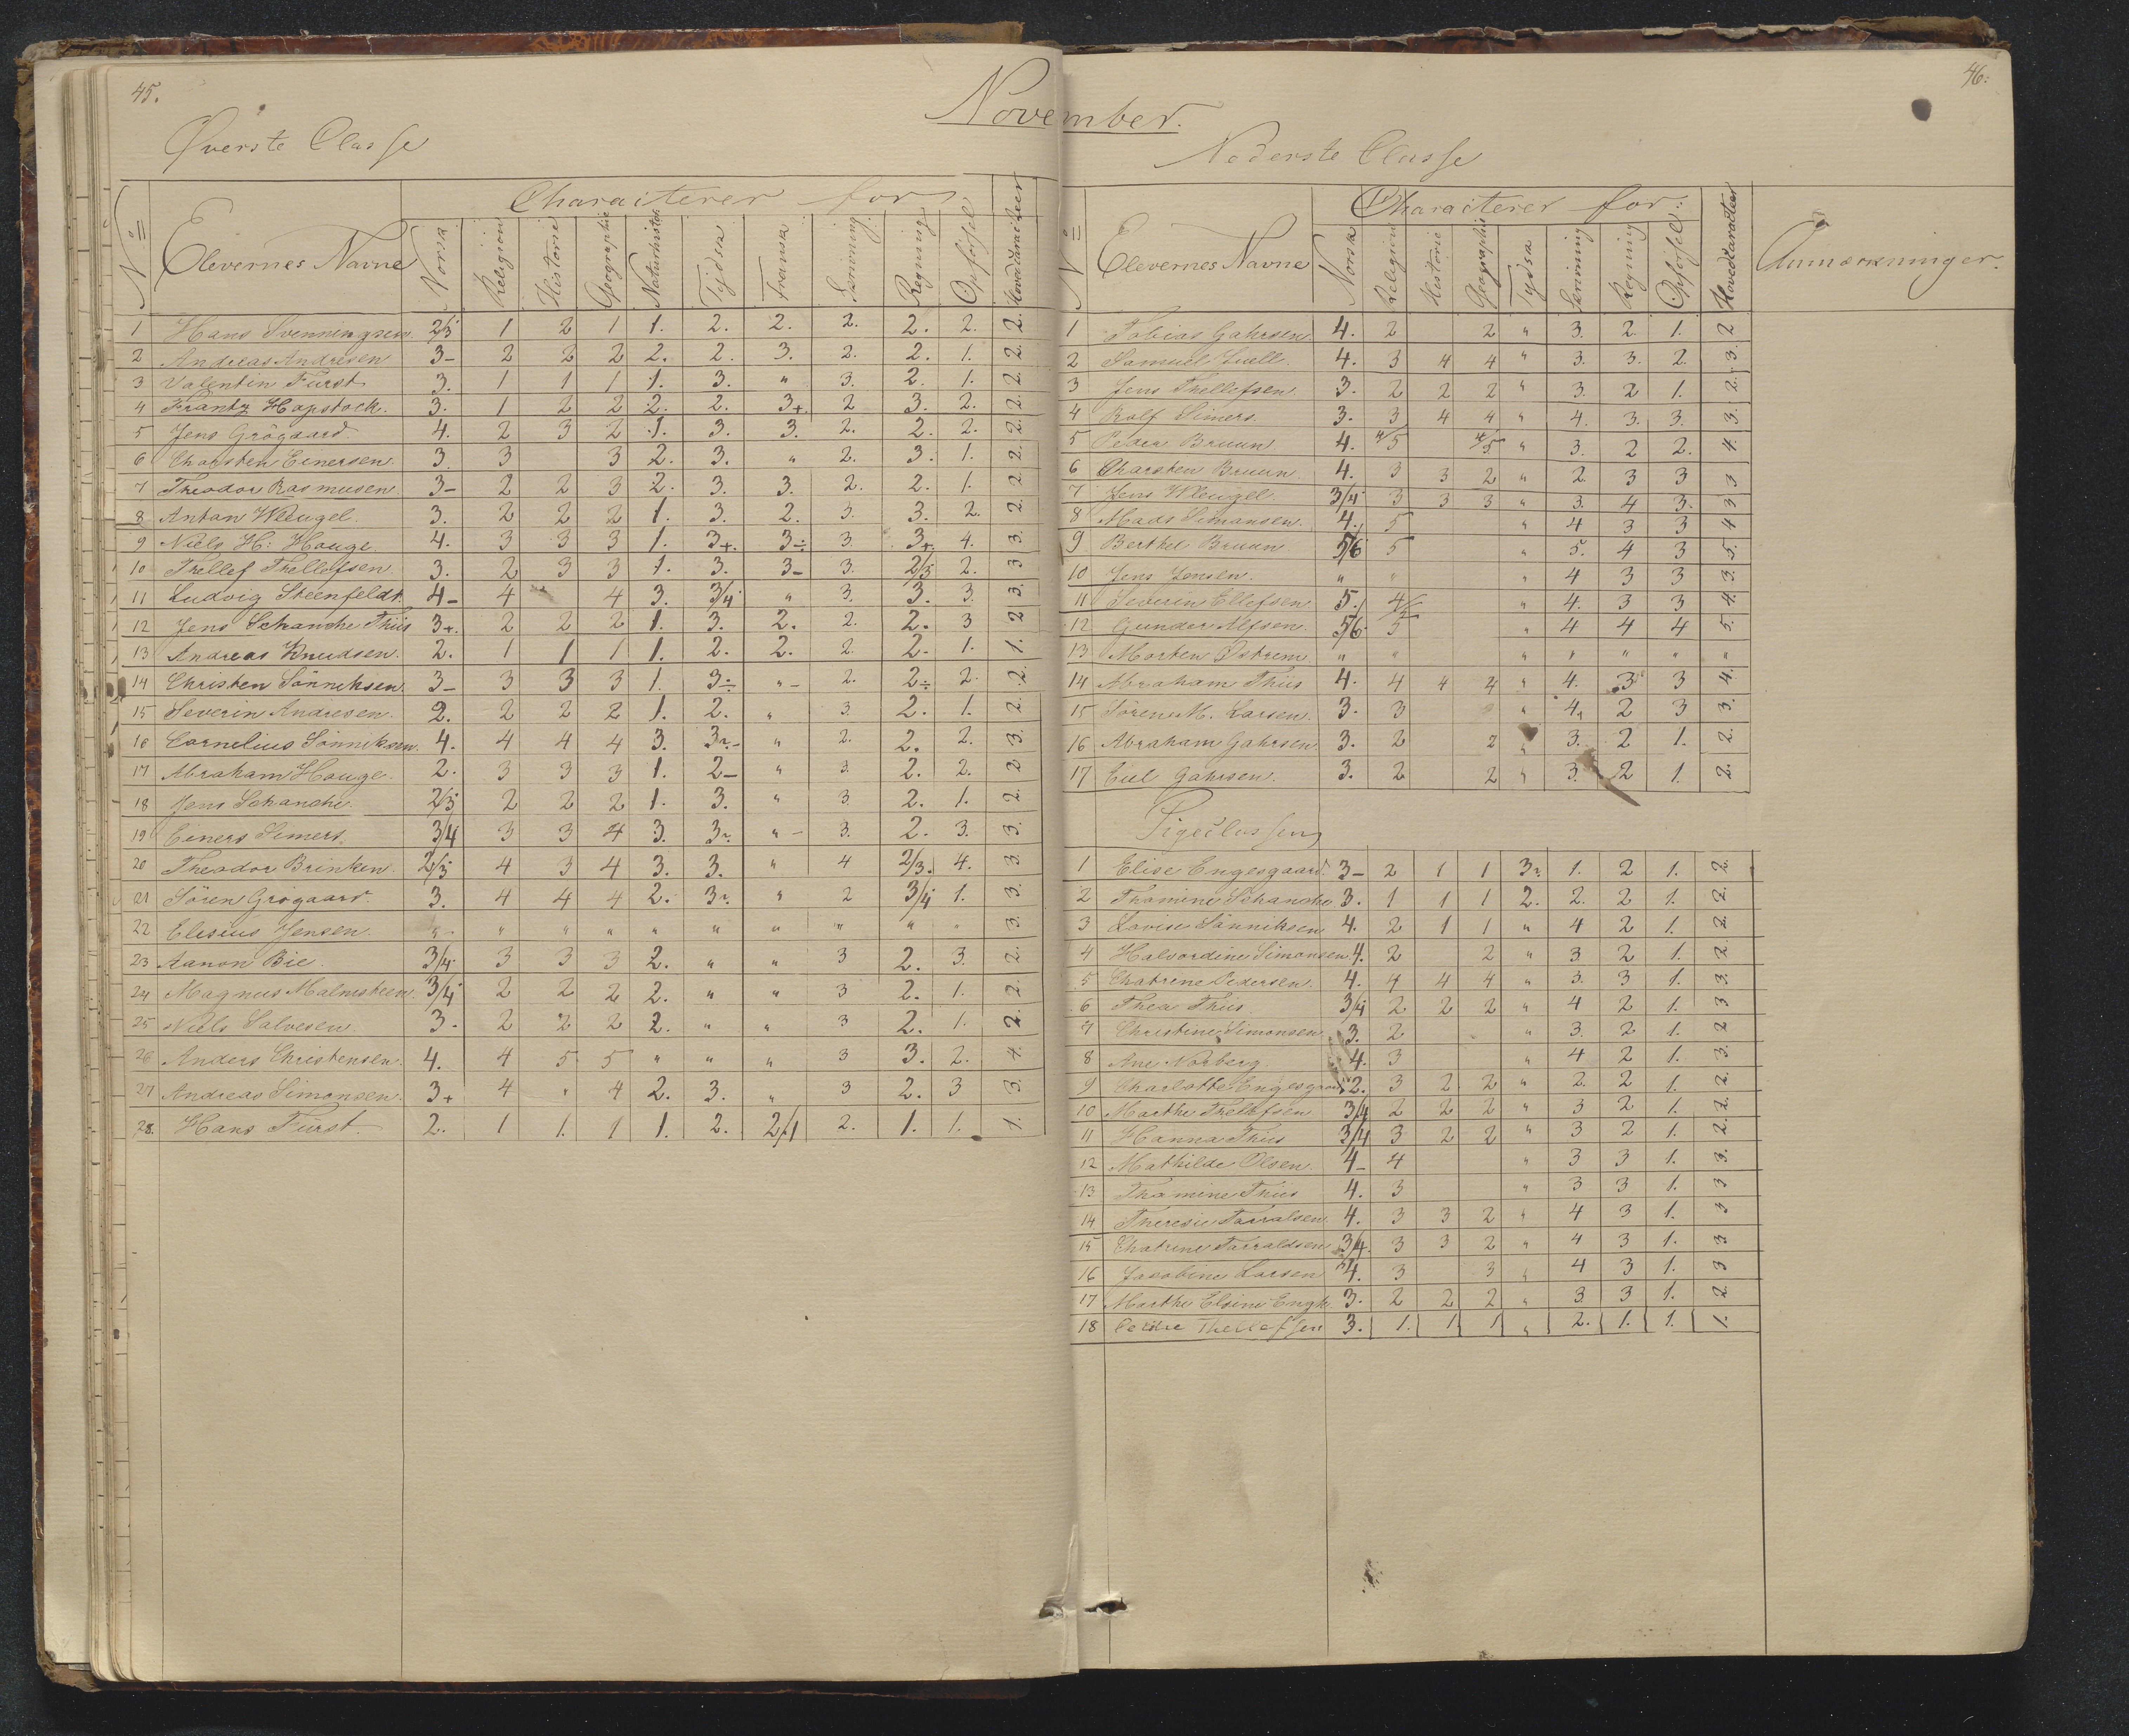 45.
November.
Øverste Classe
N° Elevernes Navne Characterer for
Norsk Religion Historie Geographie Naturhistor. Tydsk Fransk Skrivning Regning Opførsel Hovedkarakteer
1 Hans Svenningsen. 2/3 1 2 1 1. 2. 2. 2. 2. 2. 2.
2 Andreas Andresen 3- 2 2 2 2. 2. 3. 2. 2. 1. 2.
3 Valentin Fürst 3. 1 1 1 1. 3. " 3. 2. 1. 2.
4 Frantz Hapstock. 3. 1 2 2 2. 2. 3+. 2 3. 2. 2.
5 Jens Grögaard. 4. 2 3 2 1. 3. 3. 2. 2. 2. 2.
6 Charsten Einersen. 3. 3 3 2. 3. " 2. 3. 1. 2.
7 Theodor Rasmusen. 3- 2 2 3 2. 3. 3. 2. 2. 1. 2.
8 Anton Wleugel. 3. 2 2 2 1. 3. 2. 3. 3. 2. 2.
9 Niels H: Houge. 4. 3 3 3 1. 3+. 3÷ 3. 3+. 4. 3.
10 Thellef Thellefsen. 3. 2 3 3 1. 3. 3- 3. 2/3 2. 3
11 Ludvig Steenfeldt. 4- 4 4 3. 3/4 " 3. 3. 3 3.
12 Jens Schanche Thiis 3+. 2 2 2 1. 3. 2. 2. 2. 3 2
13 Andreas Knudsen. 2. 1 1 1 1. 2. 2. 2. 2. 1. 1.
14 Christen Sönniksen. 3- 3 3 3 1. 3÷ "- 2. 2÷ 2. 2.
15 Severin Andresen. 2. 2 2 2 1. 2. " 3. 2. 1. 2.
16 Cornelius Sönniksen. 4. 4 4 4 3. 3?- " 2. 2. 2. 3.
17 Abraham Houge. 2. 3 3 3 1. 2- " 3. 2. 2. 2
18 Jens Schanche. 2/3 2 2 2 1. 3. " 3. 2. 1. 2.
19 Einers Simers. 3/4 3 3 4 3. 3? "- 3. 2. 3. 3.
20 Theodor Brinken. 2/3 4 3 4 3. 3. " 4 2/3. 4. 3.
21 Sören Grögaard. 3. 4 4 4 2. 3?. " 2 3/4 1. 3.
22 Elesius Jensen. " " " " " " " " " " 3.
23 Aanon Bie. 3/4 3 3 3 2. " " 3 2. 3. 2.
24 Magnus Malmsteen. 3/4 2 2 2 2. " " 3 2. 1. 2.
25 Niels Salvesen. 3. 2 2 2 2. " " 3 2. 1. 2.
26 Anders Christensen. 4. 4 5 5 " " " 3 3. 2. 4.
27 Andreas Simonsen. 3+ 4 " 4 2. 3. " 3 2. 3 3.
28. Hans Fürst. 2. 1 1. 1 1. 2. 2/1 2. 1. 1. 1.
46.
Nederste Classe
N° Elevernes Navne Characterer for: Anmærkninger.
Norsk Religion Historie Geographie Tydsk Skrivning Regning Opførsel Hovedkaracteer
1 Tobias Gahrsen. 4. 2 2 " 3. 2 1. 2
2 Samuel Juell. 4. 3 4 4 " 3. 3. 2. 3.
3 Jens Thellefsen. 3. 2 2 2 " 3. 2 1. 2.
4 Rolf Simers. 3. 3 4 4 " 4. 3. 3. 3.
5 Peder Bruun 4. 4/5 4/5 " 3. 2 2. 4.
6 Charsten Bruun. 4. 3 3 2 " 2. 3 3 3
7 Jens Wleugel. 3/4 3 3 3 " 3. 4 3. 3
8 Mads Simonsen. 4. 5 " 4 3 3 4
9 Berthel Bruun. 5/6 5 " 5. 4 3 5.
10 Jens Jensen. " " " 4 3 3 3.
11 Severin Ellefsen 5. 4/ " 4. 3 3 4.
12 Gunder Alfsen. 5/6 5 " 4 4 4 5.
13 Morten Östrem. " " " " " " "
14 Abraham Thiis 4. 4 4 4 " 4. 3 3 4.
15 Sören M. Larsen. 3. 3 " 4. 2 3 3.
16 Abraham Gahrsen. 3. 2 2 " 3. 2 1. 2.
17 Eiel Gahrsen. 3. 2 2 " 3. 2 1. 2.
Pigeclassen
1 Elise Engesgaard. 3- 2 1 1 3? 1. 2 1. 2.
2 Thomine Schanche 3. 1 1 1 2. 2. 2 1. 2.
3 Lovise Sönniksen 4. 2 1 1 " 4 2 1. 2.
4 Halvordine Simonsen 4. 2 2 " 3. 2 1. 2.
5 Chatrine Pedersen. 4. 4 4 4 " 3. 3 1. 3.
6 Thea Thiis. 3/4 2 2 2 " 4 2 1. 3
7 Christine Simonsen. 3. 2 " 3. 2 1. 2
8 Ane Norberg. 4. 3 " 4 2 1. 3.
9 Charlotte Engesgaard 2. 3 2 2 " 2. 2 1. 2.
10 Marthe Thellefsen 3/4 2 2 2 " 3 2 1. 2.
11 Hanna Thiis 3/4 3 2 2 " 3 2 1. 2.
12 Mathilde Olsen. 4- 4 " 3 3 1. 3.
13 Thomine Thiis 4. 3 " 3 3 1. 3
14 Theresie Tarralsen 4. 3 3 2 " 4 3 1. 3
15 Chatrine Tarraldsen 3/4. 3 3 2 " 4 3 1. 3
16 Jacobine Larsen 4. 3 3 " 4 3 1. 3
17 Marthe Elsine Engh. 3. 2 2 2 " 3 3 1. 2
18 Thellefsen 3. 1. 1 1 " 2. 1. 1. 1.